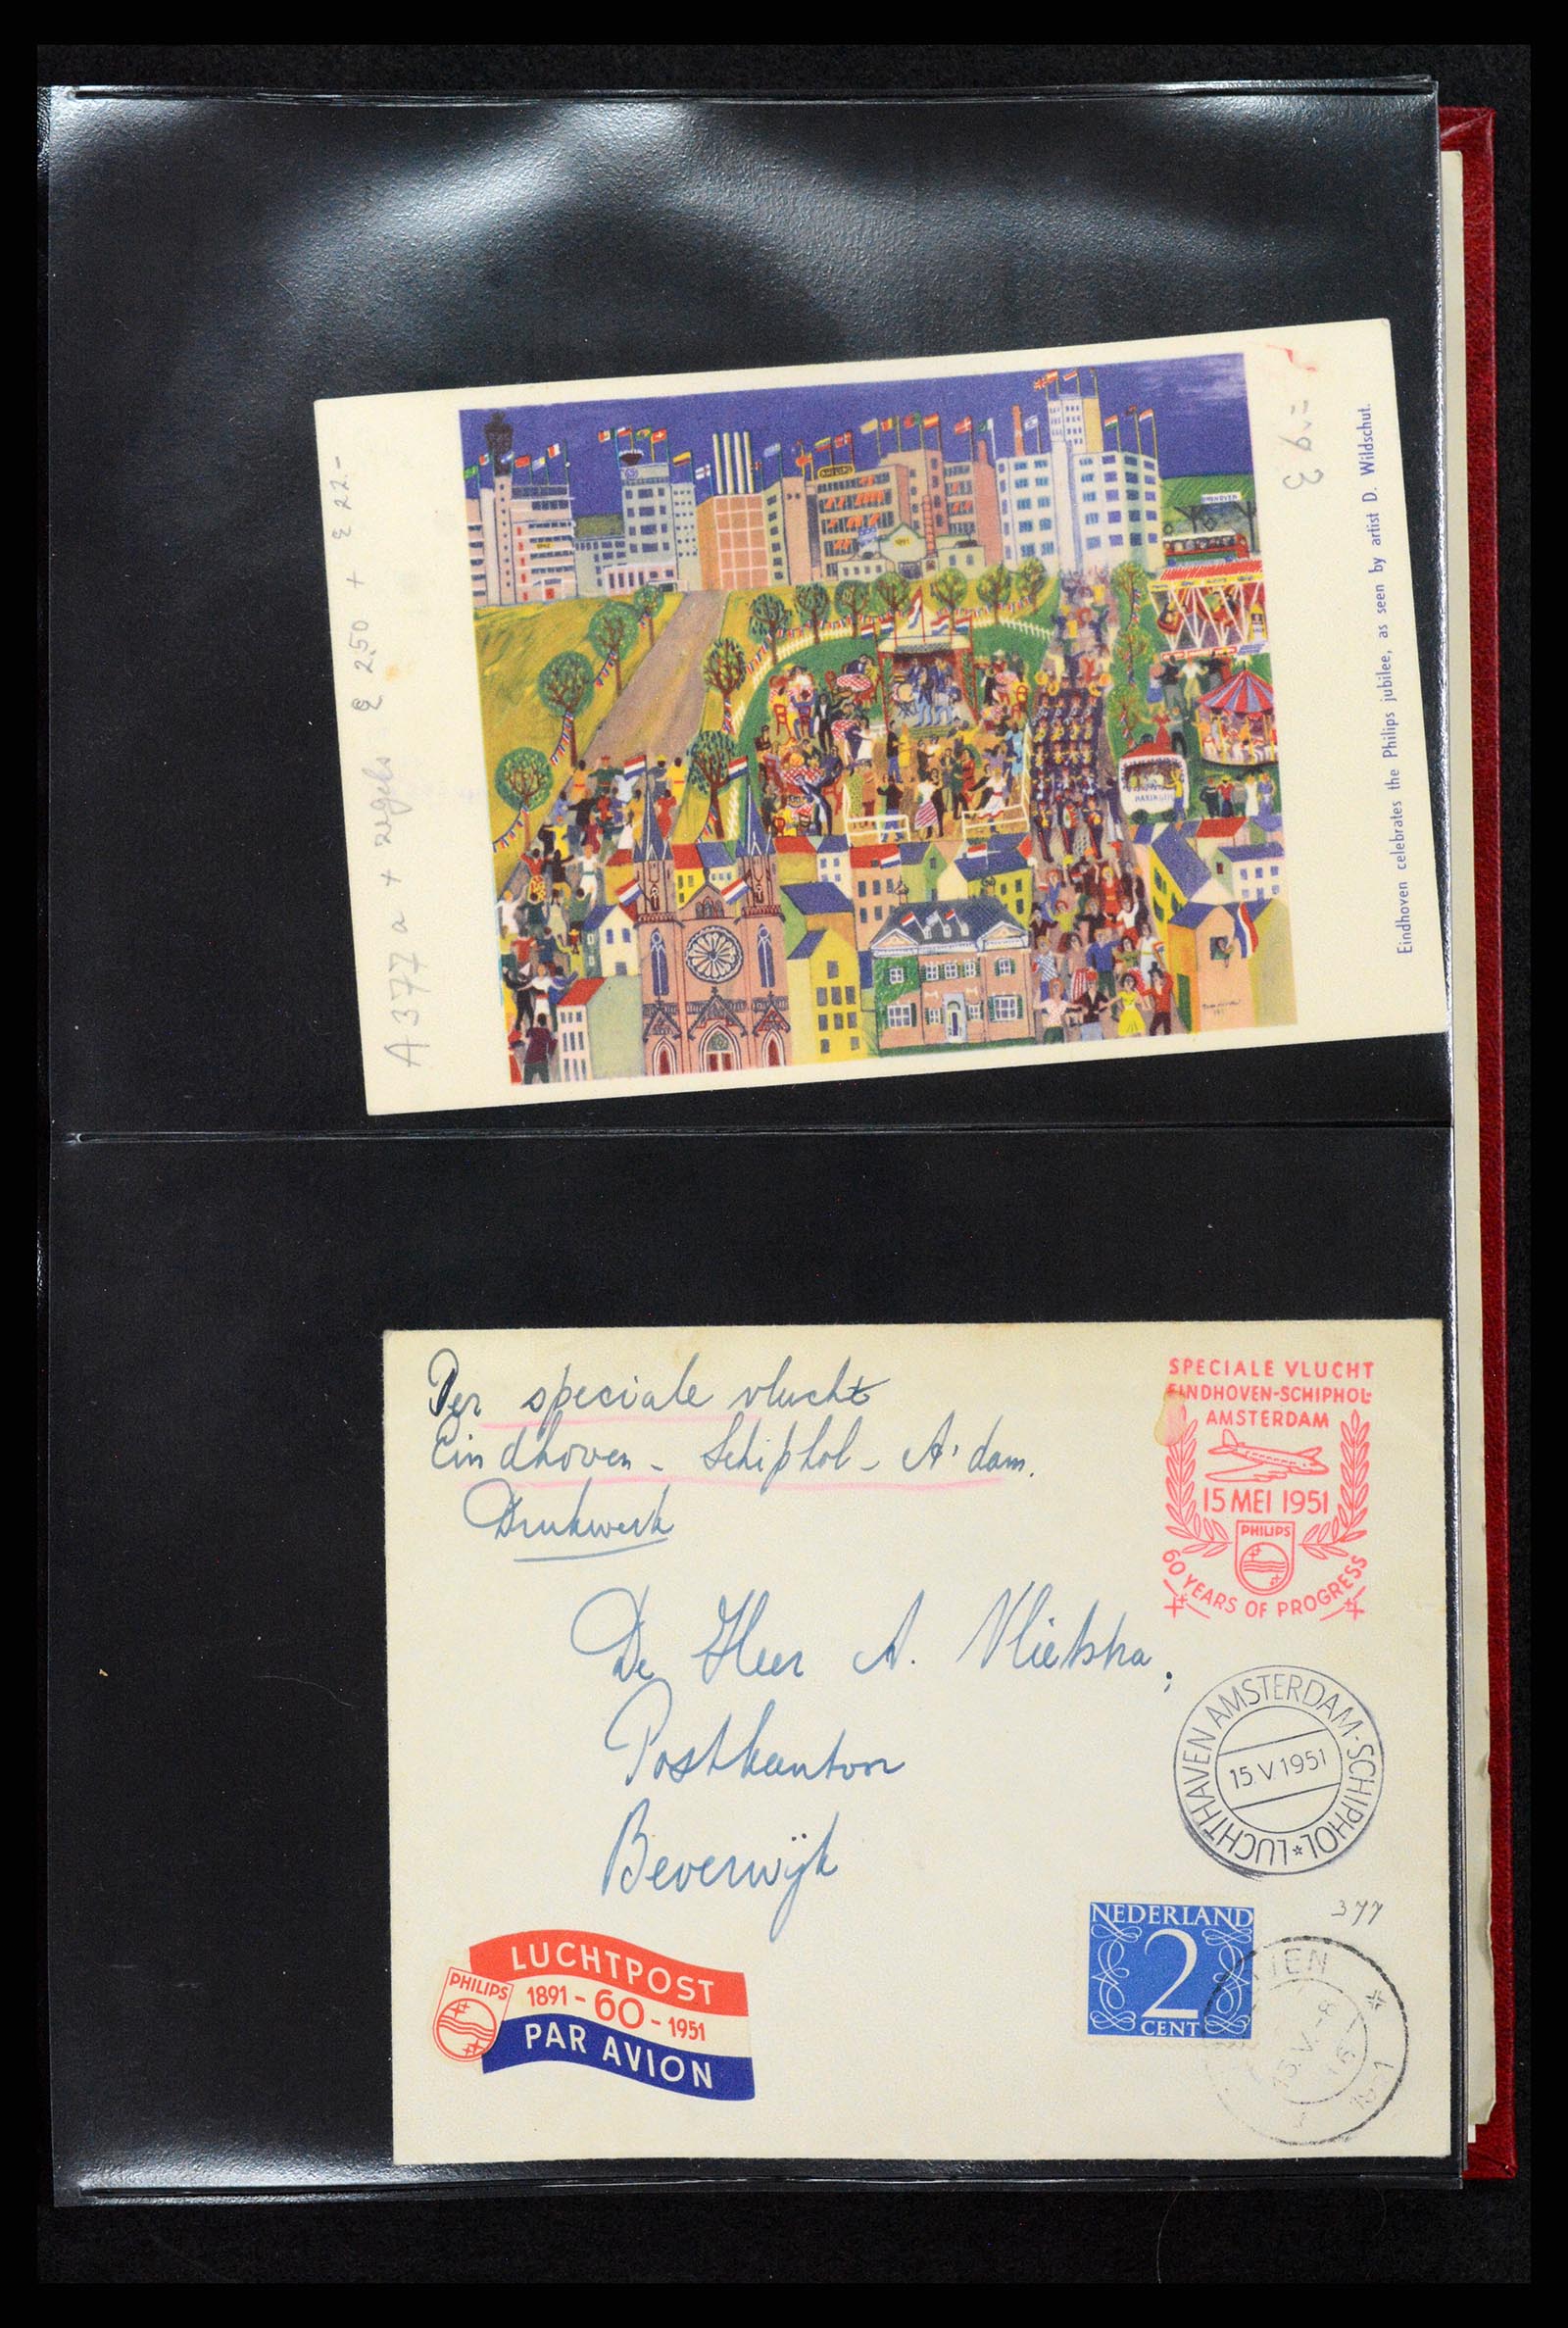 A 377 a + zegels € 2.50 + € 22.-
PHILIPS
Eindhoven celebrates the Philips jubilee, as seen by artist D. Wildschut.
Per speciale vlucht
Eindhoven - Schiphol - A'dam.
Drukwerk
SPECIALE VLUCHT
EINDHOVEN-SCHIPHOL-
AMSTERDAM
15 MEI 1951
PHILIPS
60 YEARS OF PROGRESS
De Heer A. Vlietstra,
Postkantoor
Beverwijk
LUCHTHAVEN AMSTERDAM-SCHIPHOL *
15 V 1951
377
NEDERLAND
2
CENT
LUCHTPOST
PHILIPS
1891 - 60 - 1951
PAR AVION